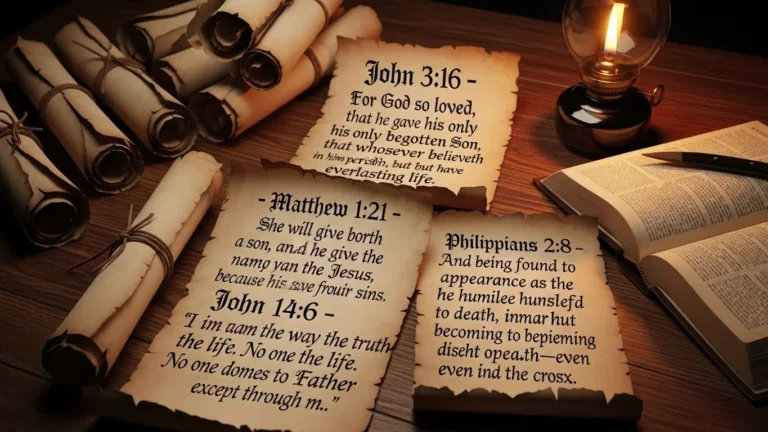 John 3:16 -
For God so loved,
that he gave his only
his only begotten Son,
that whosoever believeth
in perish, but but have
everlasting life.
- Matthew 1:21 -
She will give borth
a son, and he give the
namp yan the Jesus,
because his save frouir sins.
John 14:6 -
"I im aam the way the truth
the life. No one the life.
No one domes to Father
except through m.."
Philippians 2:8 -
And being found to
appearance as the
he humilee hunslefd
to death, inmar hut
becoming to bepieming
diseht opea.th—even
even ind the crosx.